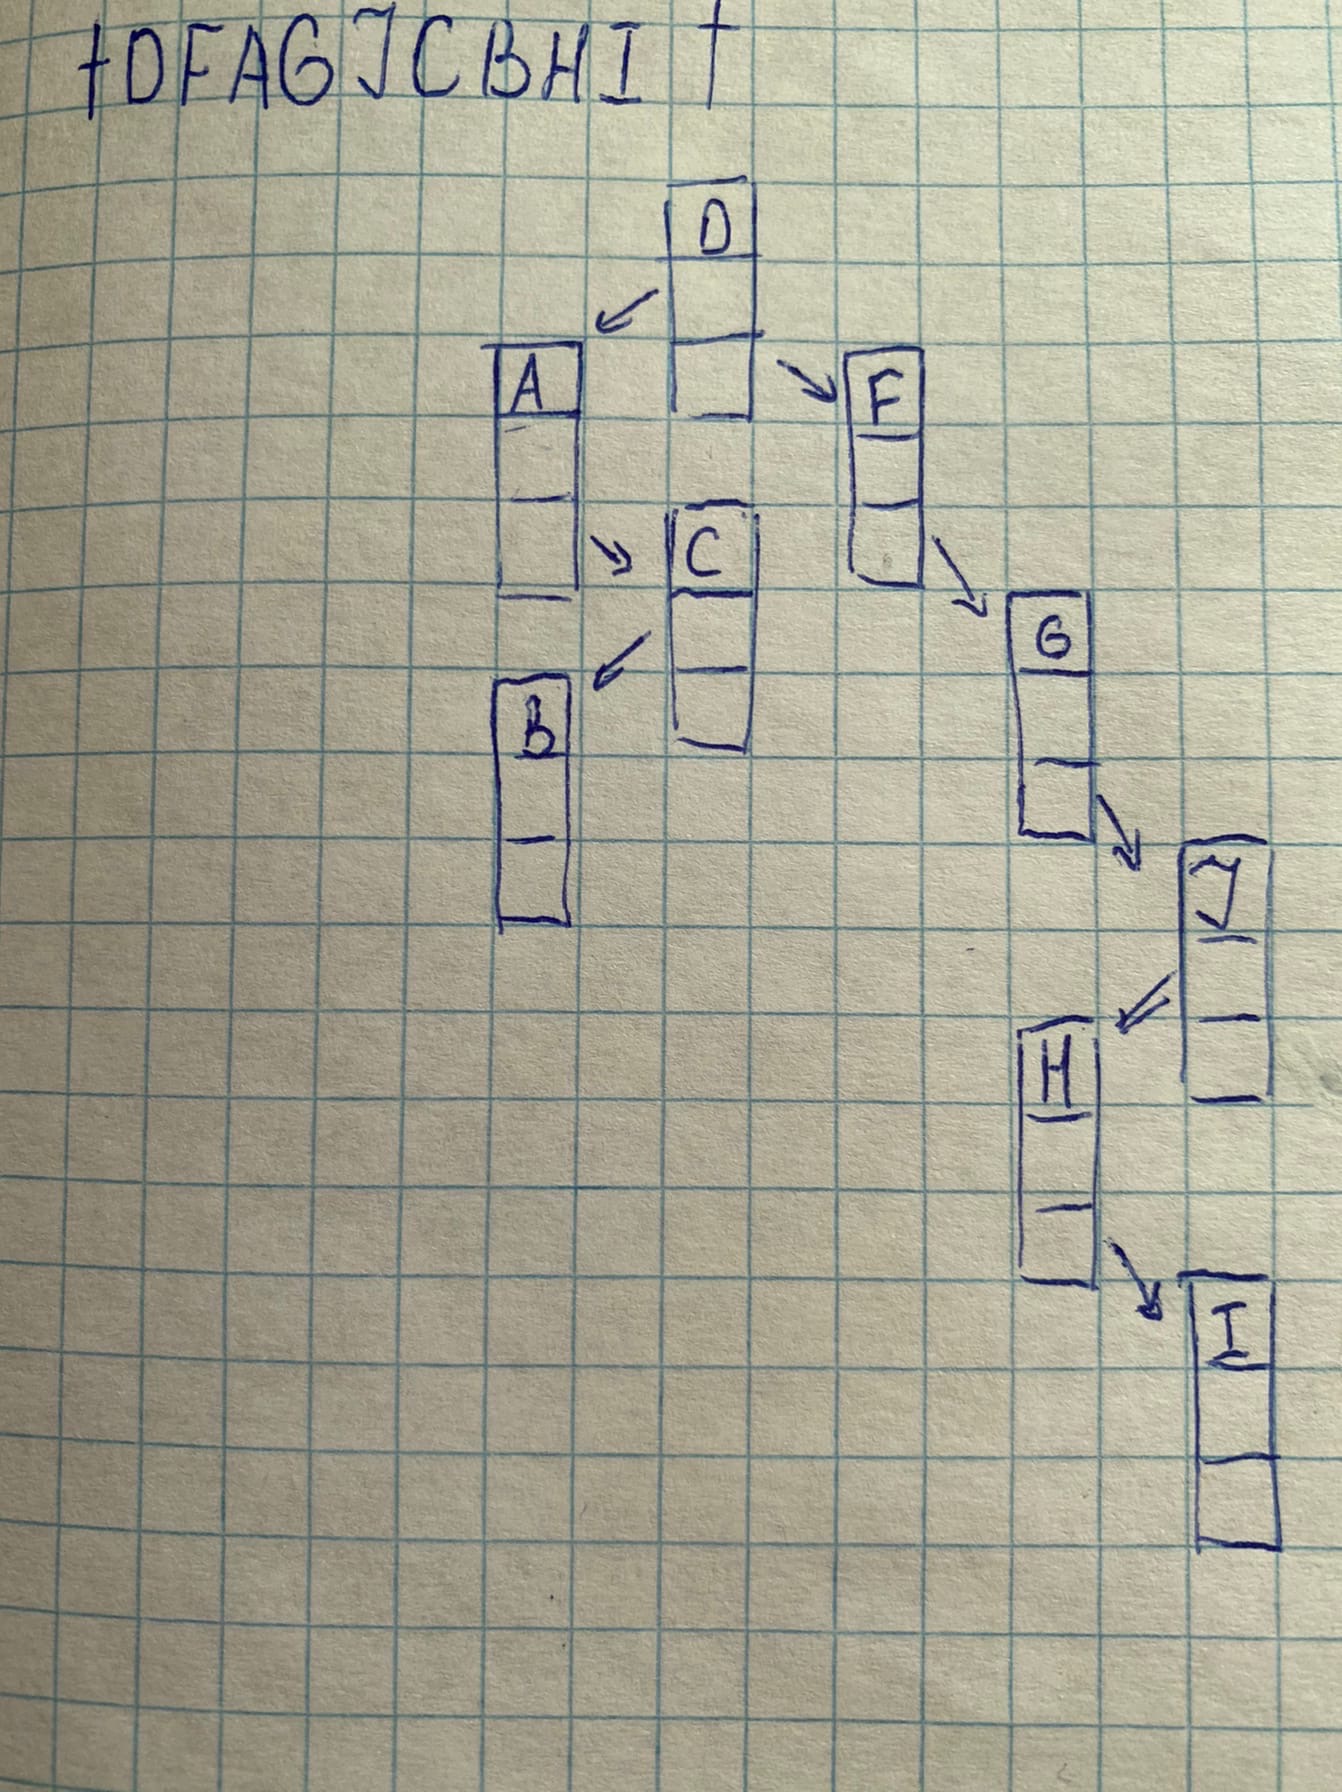 +DFAGJCBHI+
D
A F
C
G
B
J
H
I